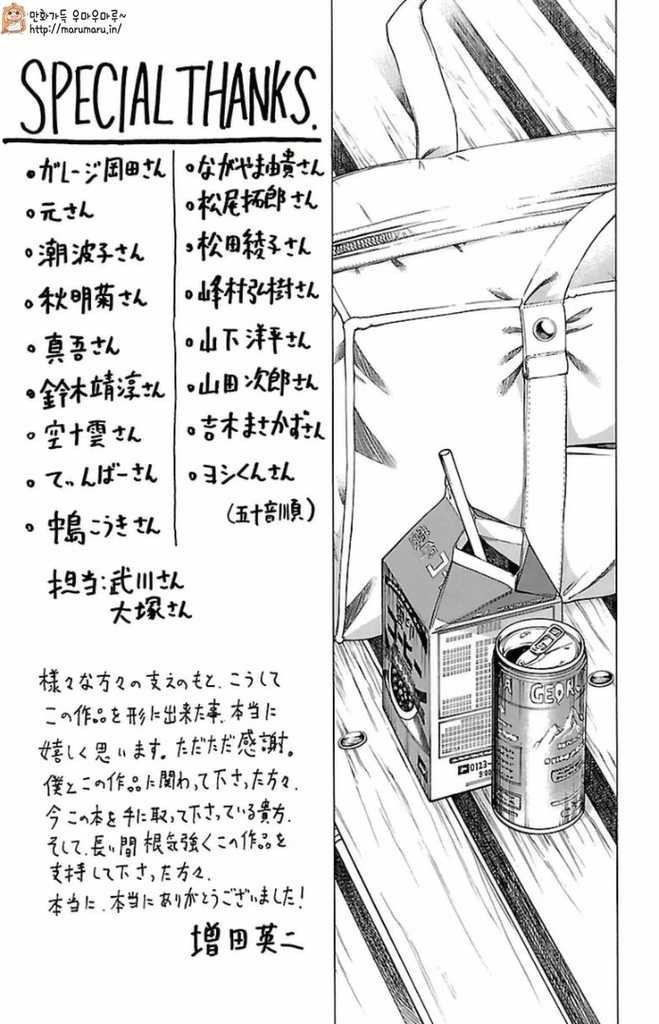 만화가득 우마우마루~
http://marumaru.in/
SPECIAL THANKS.
・ガレージ岡田さん
・元さん
・潮波子さん
・秋明菊さん
・真吾さん
・鈴木靖淳さん
・空十雲さん
・てぃんばーさん
・中島こうきさん
・ながやま由貴さん
・松尾拓郎さん
・松田綾子さん
・峰村弘樹さん
・山下洋平さん
・山田次郎さん
・吉木まさかずさん
・ヨシくんさん
(五十音順)
担当:武川さん
大塚さん
様々な方々の支えのもと、こうして
この作品を形に出来た事、本当に
嬉しく思います。ただただ感謝。
僕とこの作品に関わって下さった方々、
今この本を手に取って下さっている貴方、
そして、長い間根気強くこの作品を
支持して下さった方々、
本当に、本当にありがとうございました!
増田英二
コーヒー
0123-
GEOR